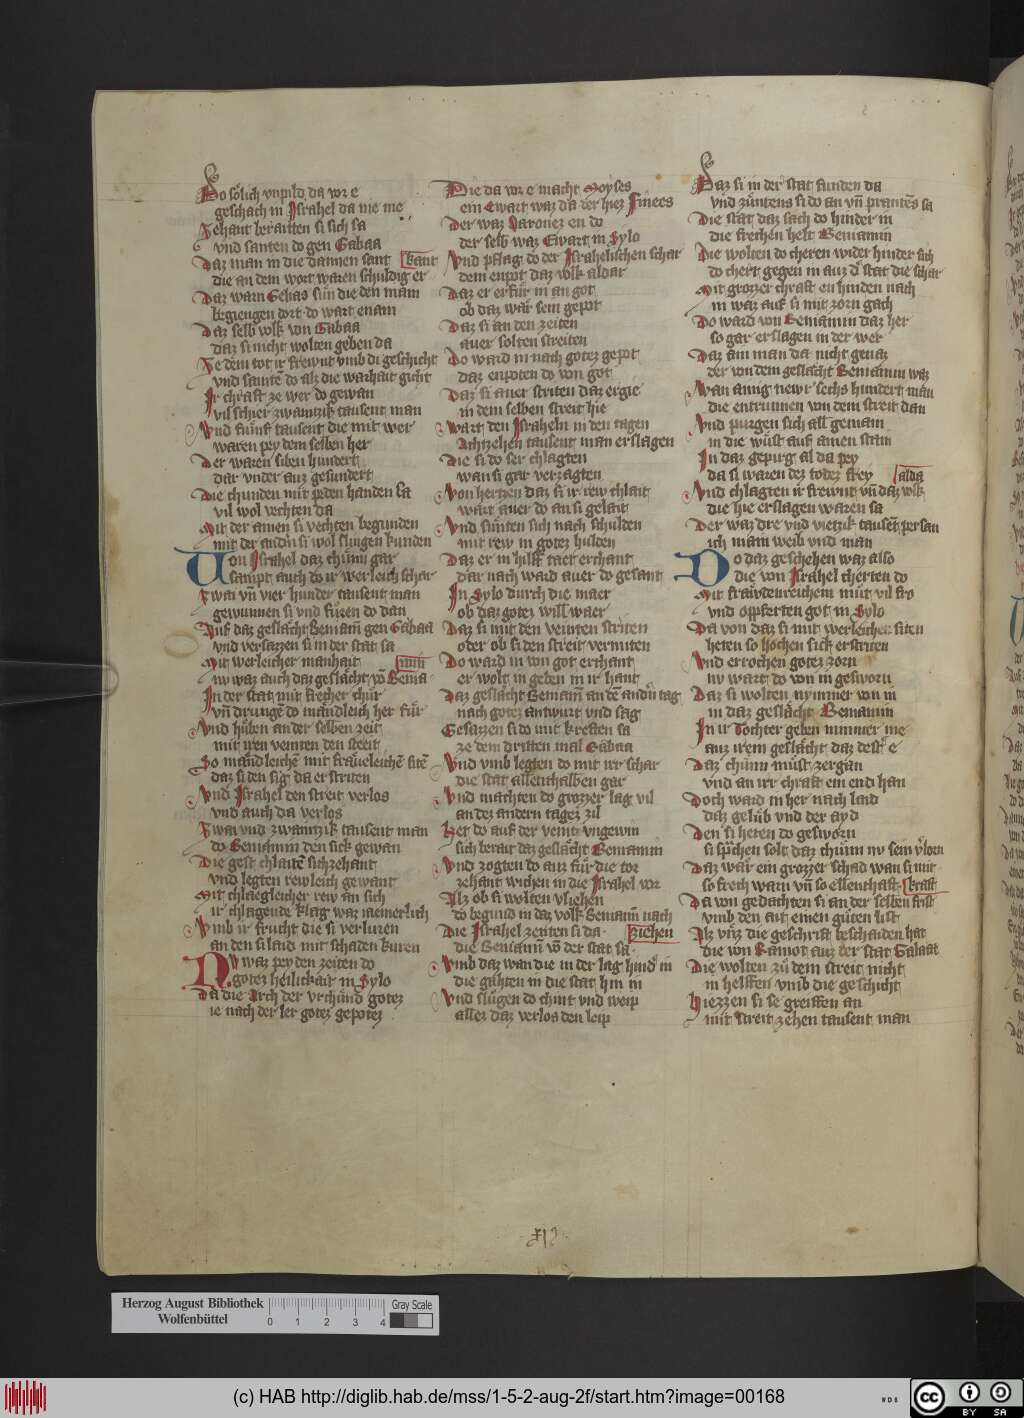 So sölich vnpild da wr e
geschach in Israhel da nie me
Zehant beraitten si sich sa
vnd santen do gen Gabaa
Daz man in die dannen sant kant
die an dem wort waren schuldig er
Daz warn Gelias sün die den man
begiengen dort do wart enam
Daz selb volk von Gabaa
daz si nicht wolten geben da
Ze dem tot ir frewnt vmb di geschicht
vnd samte do alz die warhait gicht
Ir chraft ze wer do gewan
vil schier zwaintzik tausent man
Vnd fünf tausent die mit wer
waren pey dem selben her
Der waren siben hundert
dar vnder auz gesundert
Die chunden mit peden handen sa
vil wol vechten da
Mit der ainen si vechten begunden
mit der andn si wol slingen kunden
Von Israhel daz chünn gar
sampt auch do ir werleich schar
Zwai vn vier hunder tausent man
gewunnen si vnd füren do dan
Auf daz geslacht Beniam gen Gabaa
vnd versazzen si in der stat sa
Mit werleicher manhait
nv waz auch daz geslacht vo Benia
In der stat mit frecher chür
vn drunge do mandleich her für
Vnd hüben an der selben zeit
mit iren veinten den streit
So mandleiche mit fraueleiche site
daz si den sig da erstriten
Vnd Israhel den streit verlos
vnd auch da verlos
Zwai vnd zwaintzik tausent man
do Beniamin den sick gewan
Die gest chlaite sich zehant
vnd legten rewleich gewant
Mit chlaegleicher rew an sich
ir chlagende klag waz iaemerlich
Vmb ir frucht die si verluren
an den si laid mit schaden kuren
Nv waz pey den zeiten do
gotez heilichait in Sylo
Da die Arch der vrchünd gotez
ie nach der ler gotez gepotez
Die da wr e macht Moyses
ein Ewart waz da der hiez Finees
Der waz Aaronez en do
der selb waz Ewart in Sylo
Vnd pflag do der Israhelischen schar
dem enpot daz volk aldar
Daz er erfür in an got
ob daz wär sein gepot
Daz si an den zeiten
auer solten streiten
Do ward in nach gotez gepot
daz enpoten do von got
Daz si auer striten daz ergie
in dem selben streit hie
Wart den Israheln in den tagen
Achtzehen tausent man erslagen
Die si do ser chlagten
wan si gar verzagten
Von hertzen daz si ir rew chlait
wart auer do an si gelait
Vnd sünten sich nach schulden
mit rew in gotez hulden
Daz er in hilff taet erchant
dar nach ward auer do gesant
In Sylo durch die maer
ob daz gotez will waer
Daz si mit den veinten striten
oder ob si den streit vermiten
Do ward in von got erchant
er wolt in geben in ir hant
Daz geslächt Beniam an de andn tag
nach gotez antwurt vnd sag
Gesazzen si do mit kreften sa
ze dem dritten mal Gabaa
Vnd vmb legten do mit irr schar
die stat allenthalben gar
Vnd machten do grozzer lag vil
an dez andern tagez zil
Her do auf der veint vngewin
sich berait daz geslächt Beniamin
Vnd zogten do auz für die tor
zehant wichen in die Israhel vor
Alz ob si wolten vliehen
do begund in daz volk Beniam nach
Die Israhel zeiten si da ziehen
die Beniam vo der stat sa
Vmb daz wan die in der lag hind in
die gahten in die stat hin in
Vnd slügen do chint vnd weip
allez daz verlos den leip
Daz si in der stat funden da
vnd züntens si do an vn prantes sa
Die stat daz sach do hinder in
die frechen helt Beniamin
Die wolten do cheren wider hinder sich
do chert gegen in auz d stat die schar
Mit grozzer chraft en hinden nach
in waz auf si mit zorn gach
Do ward von Beniamin daz her
so gar erslagen in der wer
Daz ain man da nicht genaz
der von dem geslächt Beniamin waz
Wan ainig newr sechs hundert man
die entrunnen von dem streit dan
Vnd purgen sich all gemain
in die wüst auf ainen stain
In daz gepirg al da pey
da si waren dez todez frey alda
Vnd chlagten ir frewnt vn daz volk
die hie erslagen waren sa
Der waz dre vnd vietzik tausent persan
ich main weib vnd man
Do daz geschehen waz also
die von Israhel cherten do
Mit fraudenreichem mut vil fro
vnd opferten got in Sylo
Da von daz si mit werleicher siten
heten so hochen sick erstriten
Vnd errochen gotez zorn
nv wart do von in gesworn
Daz si wolten nymmer von in
in daz geslächt Beniamin
In ir Tochter geben nimmer me
auz irem geslächt daz dest e
Daz chünn müst zergan
vnd an irr chraft ein end han
Doch ward in her nach laid
daz gelüb vnd der ayd
Den si heten do gesworn
si spchen solt daz chünn nv sein vlorn
Daz wär ein grozzer schad wan si mit
so frech warn vn so ellenthaft kraft
Da von gedachten si an der selben frist
vmb den ait einen guten list
Alz vnz die geschrift beschaiden hat
die von Ramot auz der stat Galaat
Die wolten zü dem streit nicht
in helffen vmb die geschicht
Hiezzen si se greiffen an
mit streit zehen tausent man
Herzog August Bibliothek
Wolfenbüttel
0 1 2 3 4
Gray Scale
(c) HAB http://diglib.hab.de/mss/1-5-2-aug-2f/start.htm?image=00168
cc BY SA